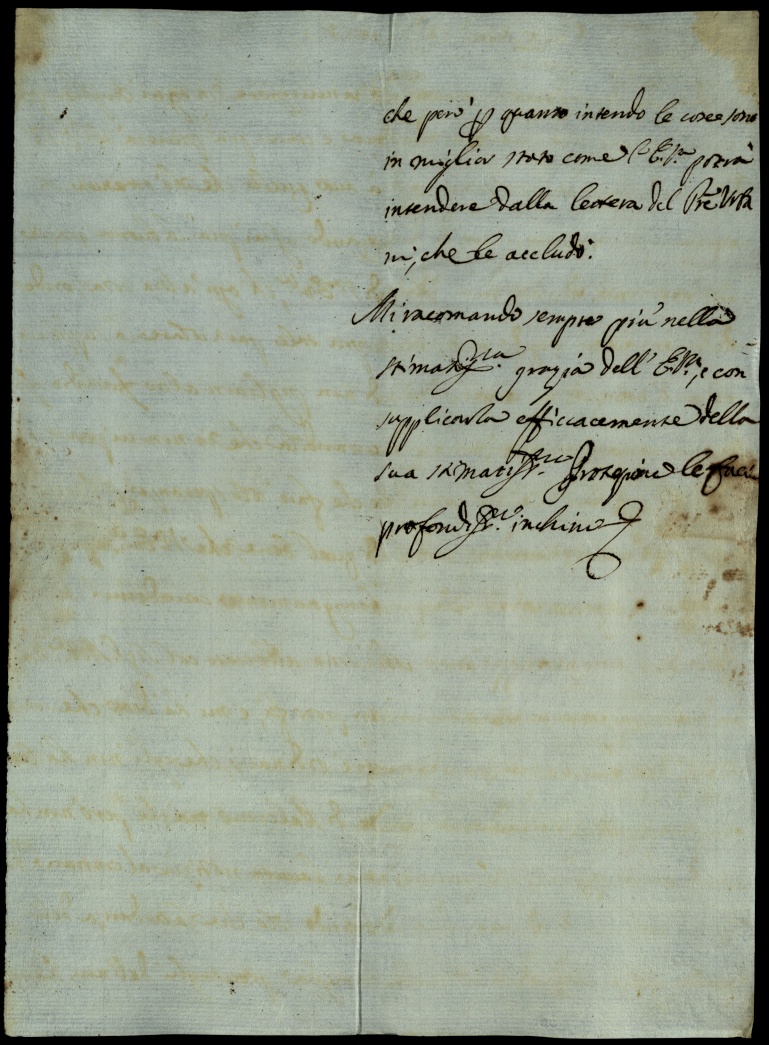 che però p quanto intendo le cose sono
in miglior stato come l'E.V.ra potrà
intendere dalla lettera del Pre Urba
ni, che le accludo.
Mi racomando sempre più nella
stimatiss.ma grazia dell' E.V.ra, e con
supplicarla efficacemente della
sua stimatiss.ma Protezione le facio
profondiss.mo inchino